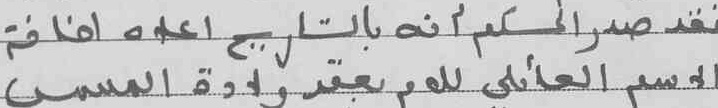 فقد صدر الحكم أنه بالتاريخ اعلاه اضافة
الاسم العائلي للام بعقد ولادة المسمى